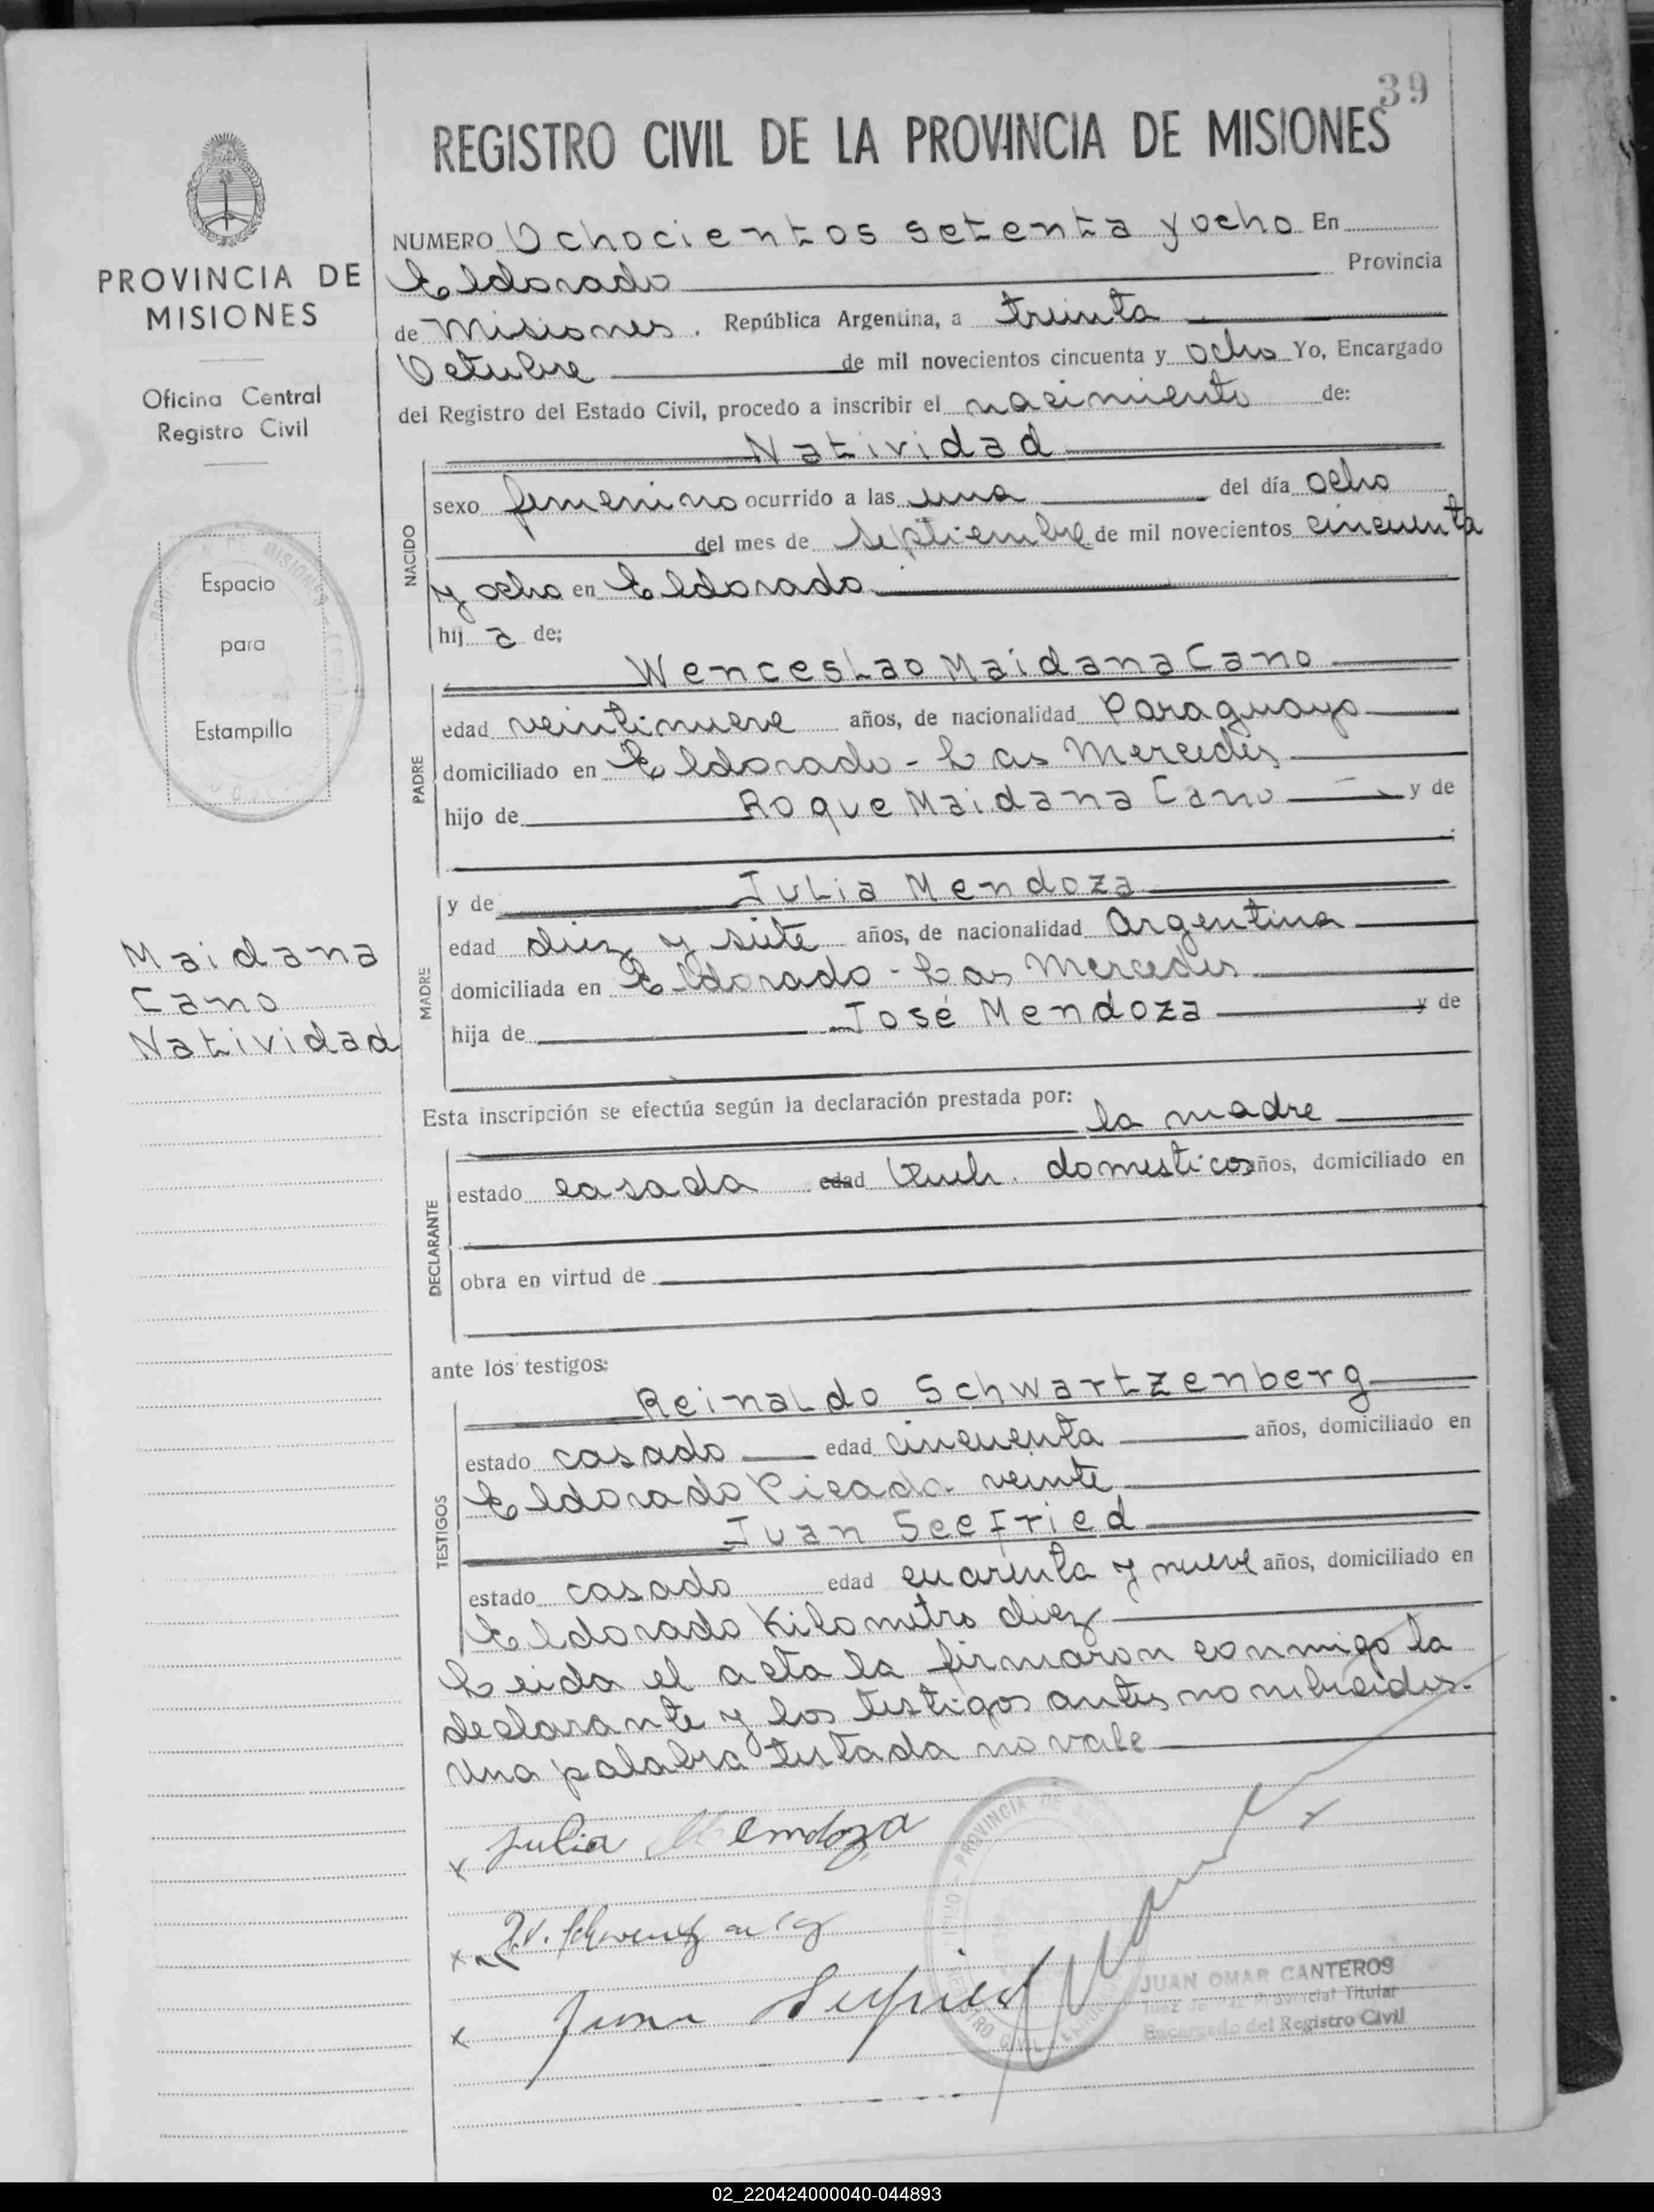 39
REGISTRO CIVIL DE LA PROVINCIA DE MISIONES
PROVINCIA DE
MISIONES
Oficina Central
Registro Civil
Espacio
para
Estampilla
Maidana
Cano
Natividad
NUMERO Ochocientos setenta y ocho En
Eldorado Provincia
de Misiones. República Argentina, a treinta
Octubre de mil novecientos cincuenta y ocho Yo, Encargado
del Registro del Estado Civil, procedo a inscribir el nacimiento de:
Natividad
NACIDO
sexo femenino ocurrido a las una del día ocho
del mes de Septiembre de mil novecientos cincuenta
y ocho en Eldorado
hij a de;
Wenceslao Maidana Cano
PADRE
edad veintinueve años, de nacionalidad Paraguayo
domiciliado en Eldorado - Las Mercedes
hijo de Roque Maidana Cano y de
y de Julia Mendoza
MADRE
edad diez y siete años, de nacionalidad Argentina
domiciliada en Eldorado - Las Mercedes
hija de José Mendoza y de
Esta inscripción se efectúa según la declaración prestada por:
la madre
DECLARANTE
estado casada edad Queh. domesticos años, domiciliado en
obra en virtud de
ante los testigos:
Reinaldo Schwartzenberg
TESTIGOS
estado casado edad cincuenta años, domiciliado en
Eldorado Picada veinte
Juan Seefried
estado casado edad cuarenta y nueve años, domiciliado en
Eldorado Kilometro diez
Leida el acta la firmaron conmigo la
declarante y los testigos antes nombrados.
Una palabra testada no vale
x Julia Mendoza
x
x Juan Seefried
PROVINCIA DE
JUAN OMAR CANTEROS
Juez de Paz Provincial Titular
Encargado del Registro Civil
02_220424000040-044893